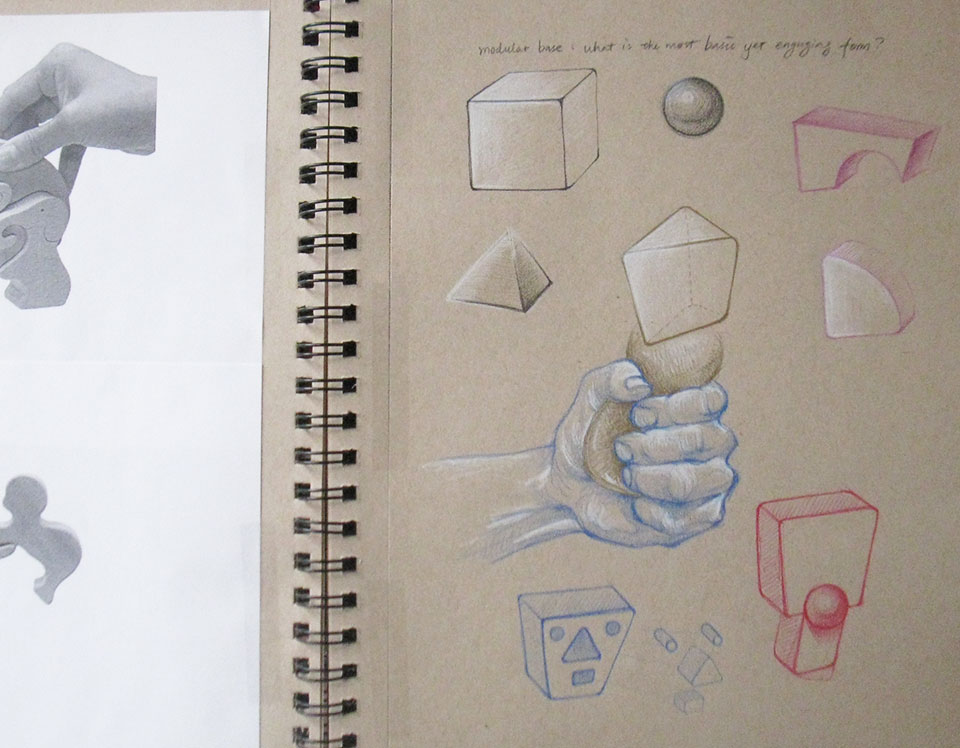 modular base : what is the most basic yet engaging form?